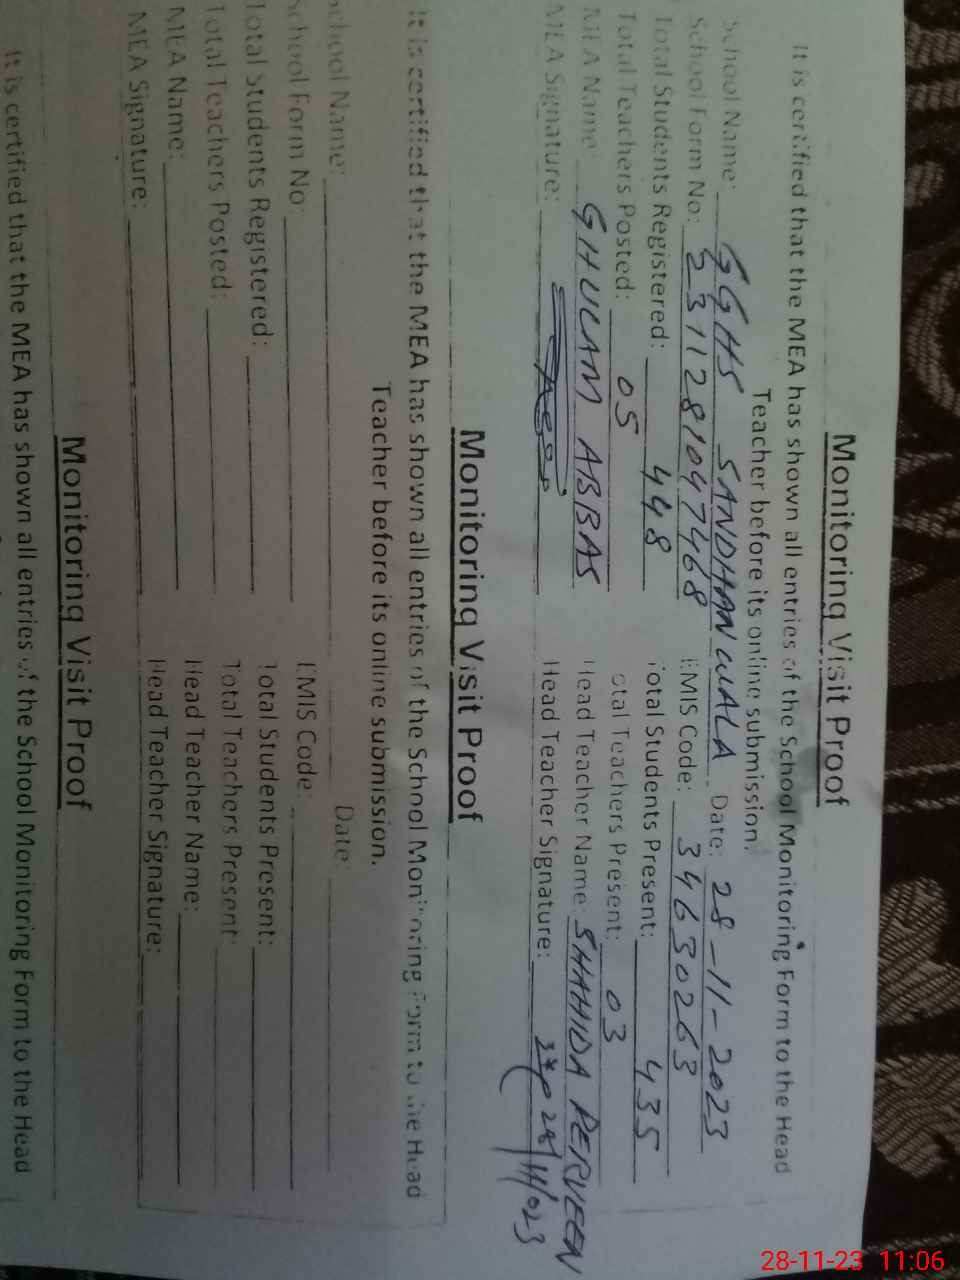 Monitoring Visit Proof
It is certified that the MEA has shown all entries of the School Monitoring Form to the Head
Teacher before its online submission.
School Name: GGHS SANDHANWALA Date: 28-11-2023
School Form No: 2311281047468 EMIS Code: 34630263
Total Students Registered: 448 Total Students Present: 435
Total Teachers Posted: 05 Total Teachers Present: 03
MEA Name: GHULAM ABBAS Head Teacher Name: SHAHIDA PERVEEN
MEA Signature: Head Teacher Signature: 28/11/023
Monitoring Visit Proof
It is certified that the MEA has shown all entries of the School Monitoring Form to the Head
Teacher before its online submission.
School Name: Date:
School Form No: EMIS Code:
Total Students Registered: Total Students Present:
Total Teachers Posted: Total Teachers Present:
MEA Name: Head Teacher Name:
MEA Signature: Head Teacher Signature:
Monitoring Visit Proof
It is certified that the MEA has shown all entries of the School Monitoring Form to the Head
28-11-23 11:06